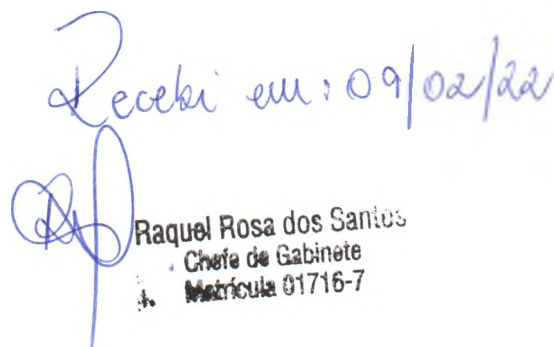 Recebi em: 09/02/22
Raquel Rosa dos Santos
Chefe de Gabinete
Matrícula 01716-7